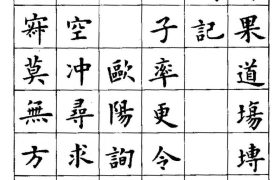 果道塲塼
記
子率更令
歐陽詢
空冲尋求
莫無方